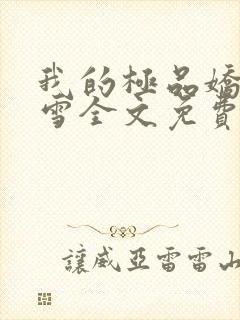 我的極品嬌
雪全文免費
讓威亞雷雷山